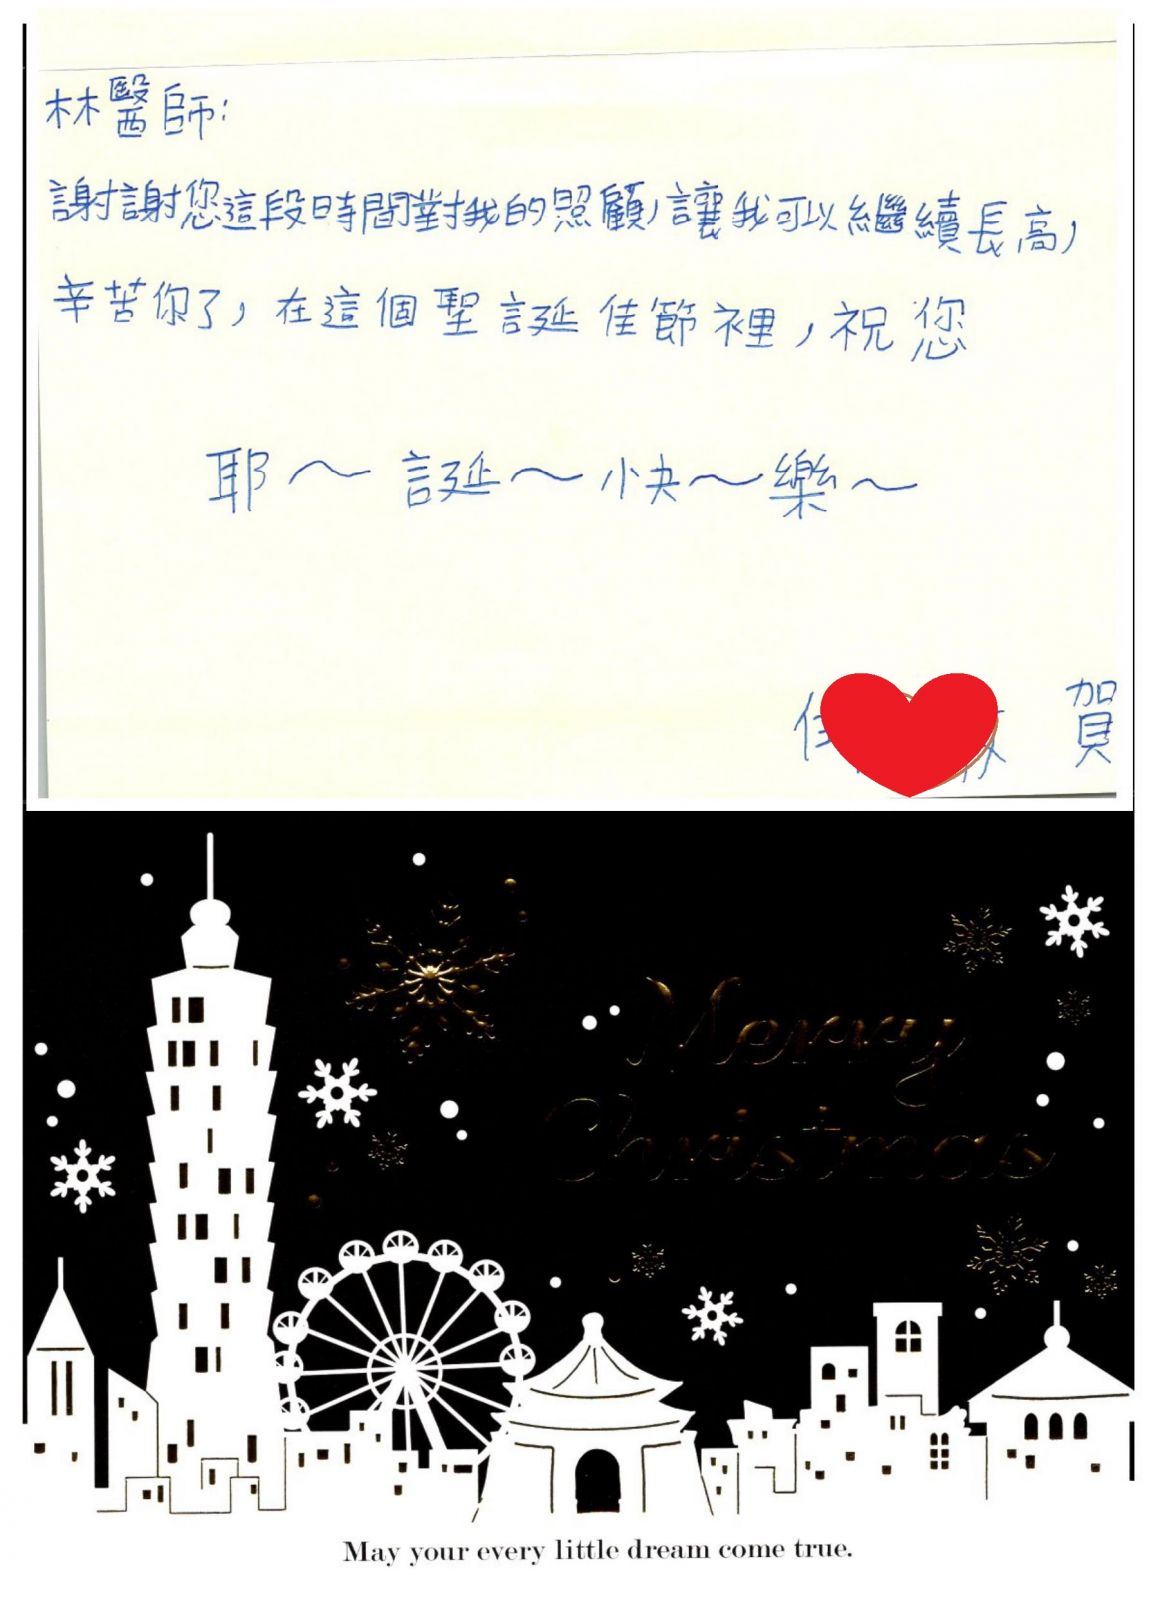 林醫師:
謝謝您這段時間對我的照顧,讓我可以繼續長高,
辛苦你了,在這個聖誕佳節裡,祝您
耶～誕～快～樂～
賀
Merry
Christmas
May your every little dream come true.